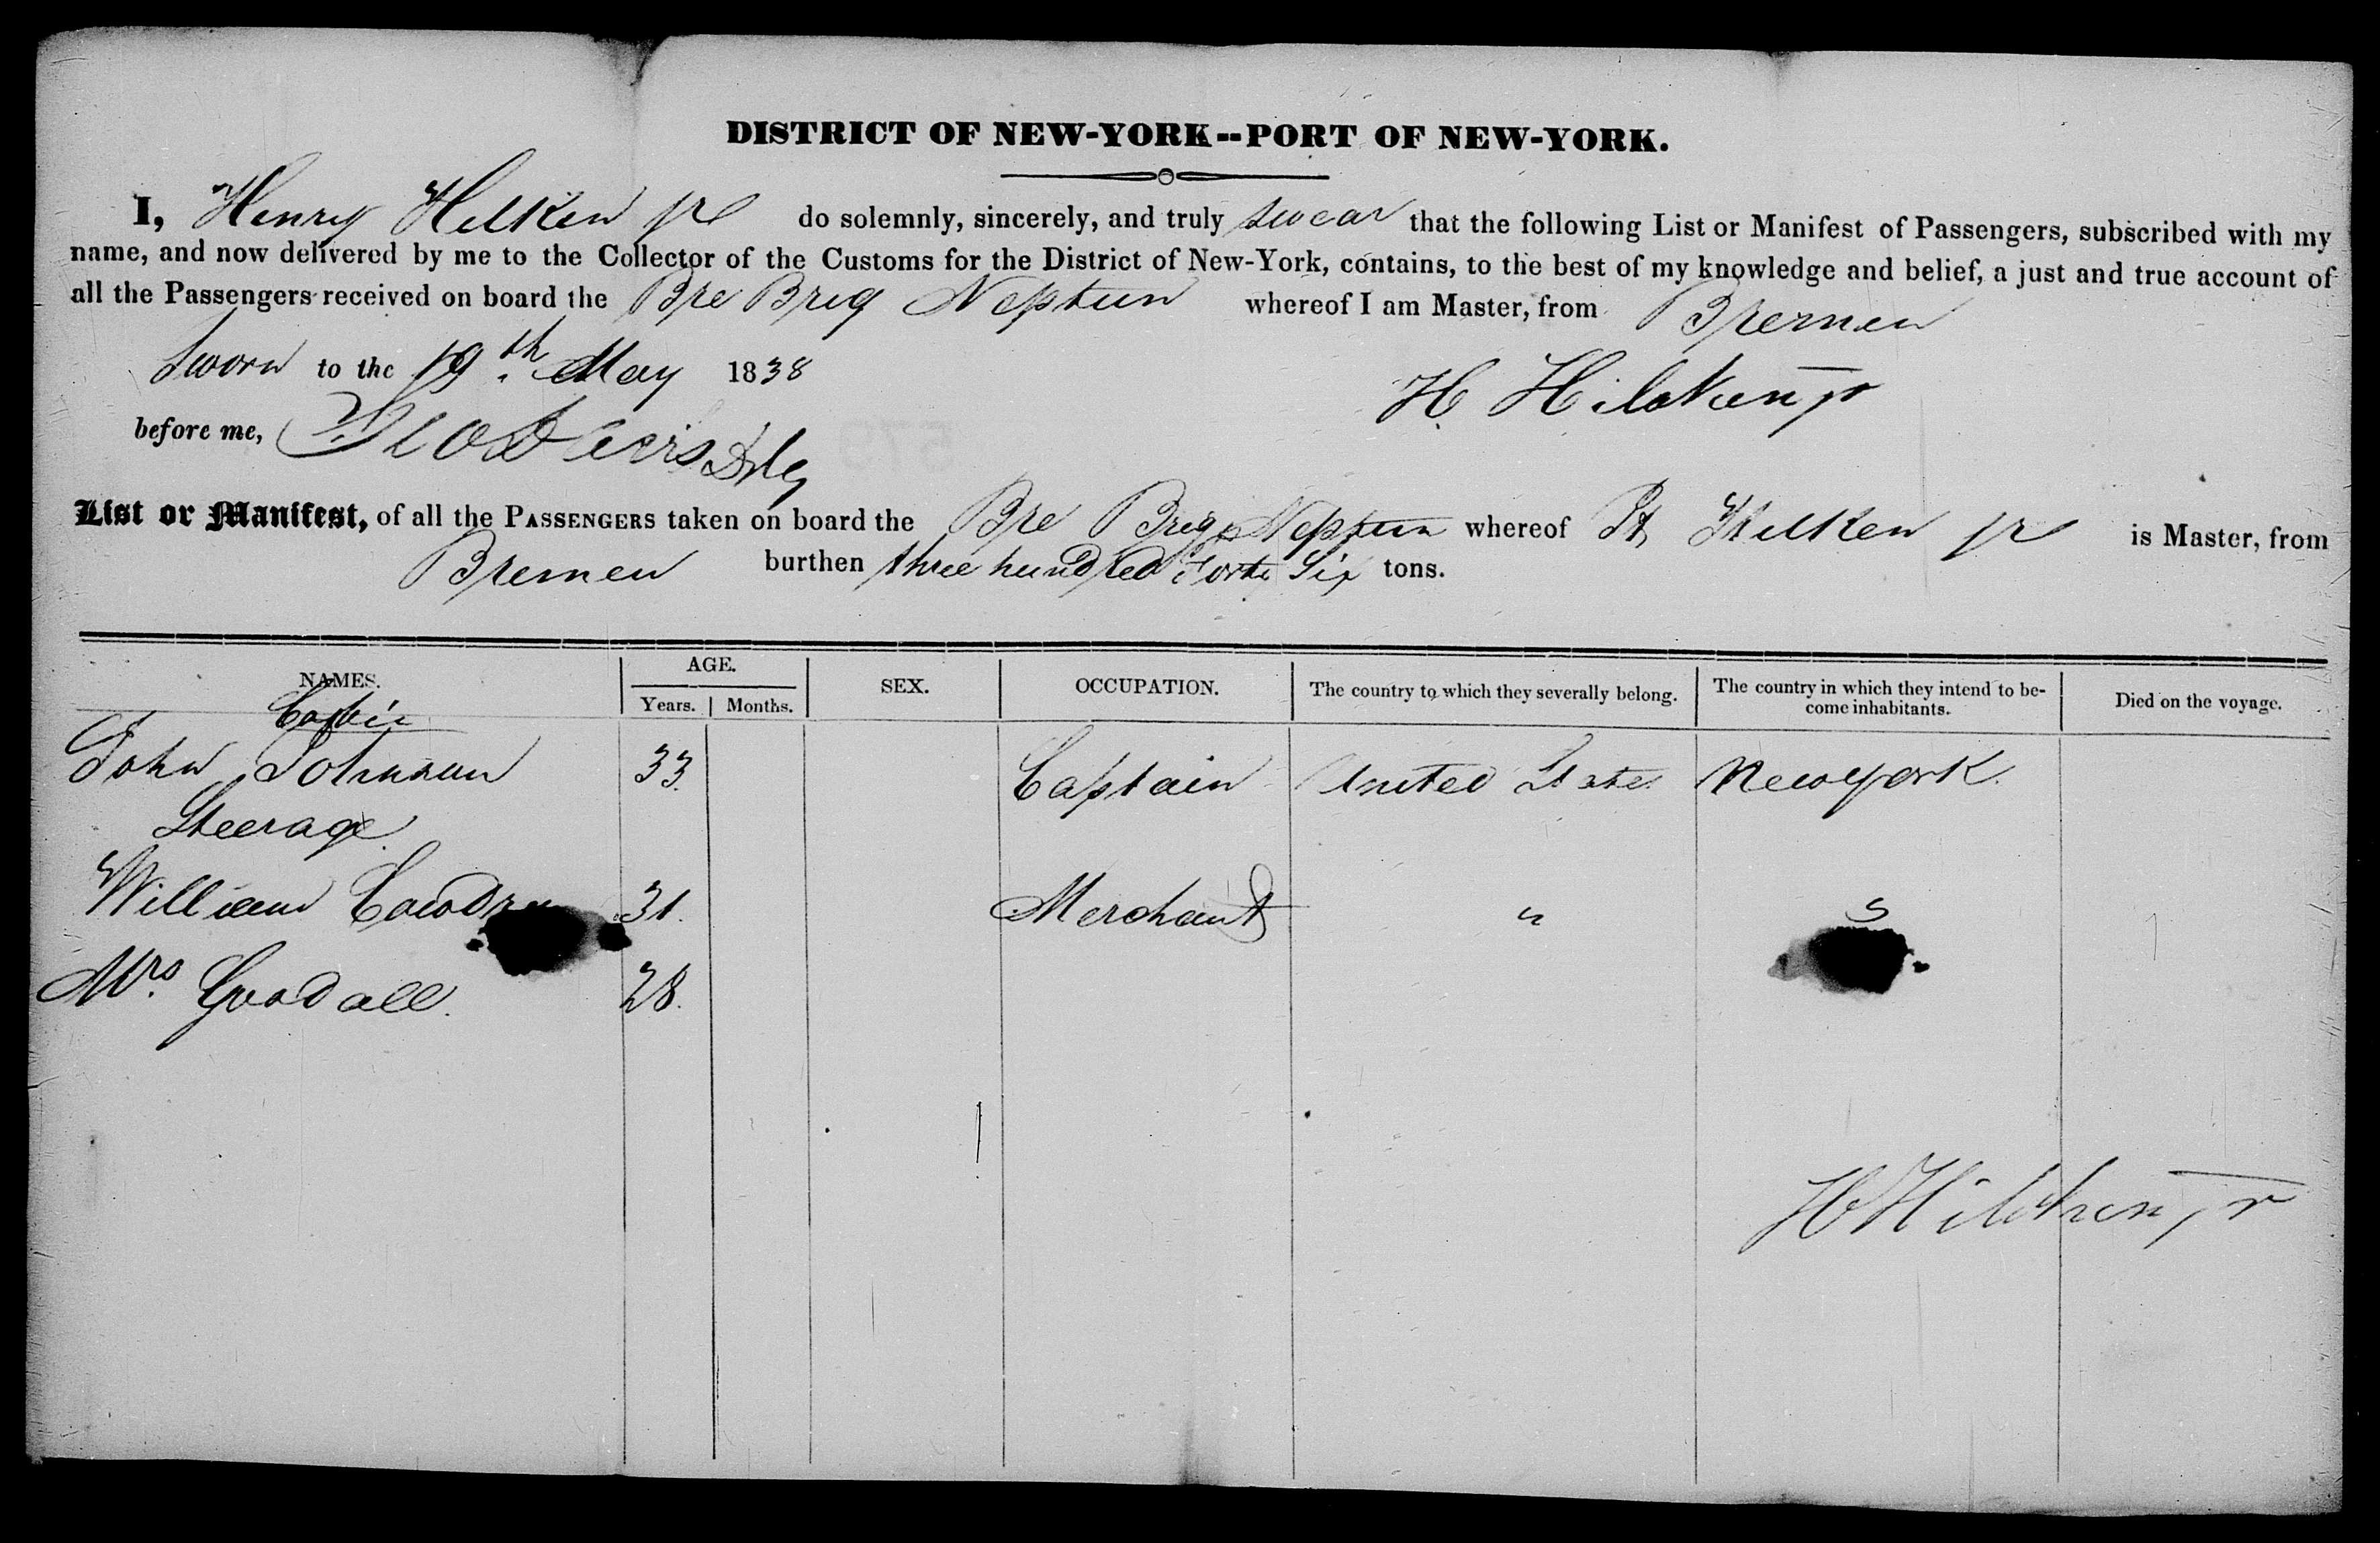 DISTRICT OF NEW-YORK--PORT OF NEW-YORK.
I, Henry Hilken jr do solemnly, sincerely, and truly swear that the following List or Manifest of Passengers, subscribed with my
name, and now delivered by me to the Collector of the Customs for the District of New-York, contains, to the best of my knowledge and belief, a just and true account of
all the Passengers received on board the Bre Brig Neptun whereof I am Master, from Bremen
Sworn to the 19th May 1838
H. Hilken jr
before me,
List or Manifest, of all the PASSENGERS taken on board the Bre Brig Neptun whereof H. Hilken jr is Master, from
Bremen burthen three hundred Forty Six tons.
NAMES. AGE. Years. Months. SEX. OCCUPATION. The country to which they severally belong. The country in which they intend to be-
come inhabitants. Died on the voyage.
Cabin
John Johnson 33. Captain United States New york.
Steerage
William 31. Merchant "
Mrs. Goodall. 28.
H Hilken jr